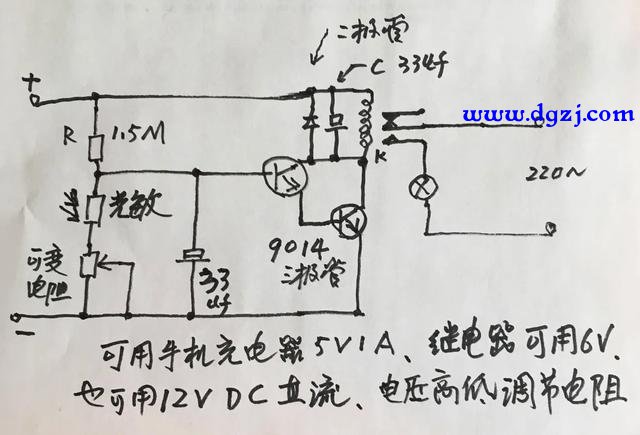 二极管
C 33uf
+
R 1.5M
www.dgzj.com
K
光敏
220~
可变
电阻
33
uf
9014
三极管
−
可用手机充电器5V1A、继电器可用6V、
也可用12V DC直流、电压高低调节电阻